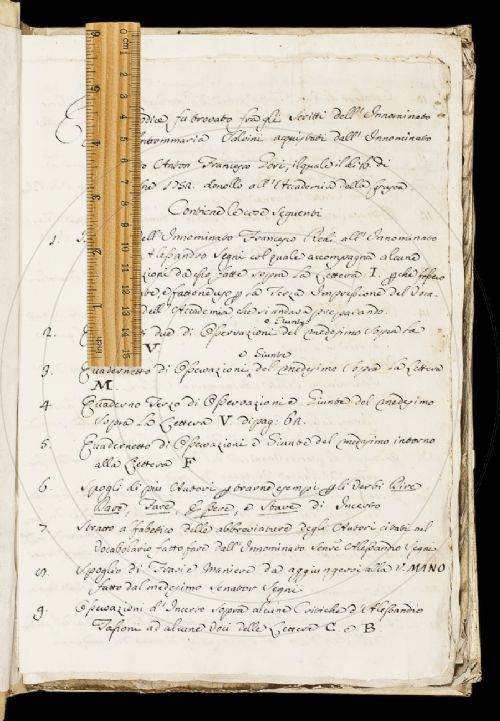 odice fu trovato fra gli Scritti dell' Innominato
Antommaria Salvini acquistati dall' Innominato
Anton Francesco Gori, il quale il dì 16 di
donollo all' Accademia della Crusca
Contiene le cose seguenti
1. dell' Innominato Francesco Redi all' Innominato
Alessandro Segni col quale accompagna alcune
zioni da esso fatte sopra la Lettera I.
la Terza Impressione del Voca-
dell' Accademia che si andava preparando.
e Giunte
2. due di Osservazioni del medesimo Sopra la
V
e Giunte
3. Quadernetto di Osservazioni del medesimo sopra la Lettera
M.
4. Quaderno Terzo di Osservazioni e Giunte del medesimo
Sopra la Lettera V. di pag: 62.
5. Quadernetto di Osservazioni e Giunte del medesimo intorno
alla Lettera F
6. Spogli di più Autori p trarne esempi p gli Verbi Dire
Dare, Fare, Essere, e Stare di Incerto
7. Estratto alfabetico delle abbreviature degli Autori citati nel
Vocabolario fatto fare dall' Innominato Senre Alessandro Segni
8. Spoglio di Frasi e Maniere da aggiungersi alla V. MANO
fatto dal medesimo Senator Segni
9. Osservazioni d' Incerto Sopra alcune Critiche d' Alessandro
Tassoni ad alcune Voci delle Lettere C. e B.
0 cm 1 2 3 4 5 6 7 8 9 10 11 12 13 14 15
inch 1 2